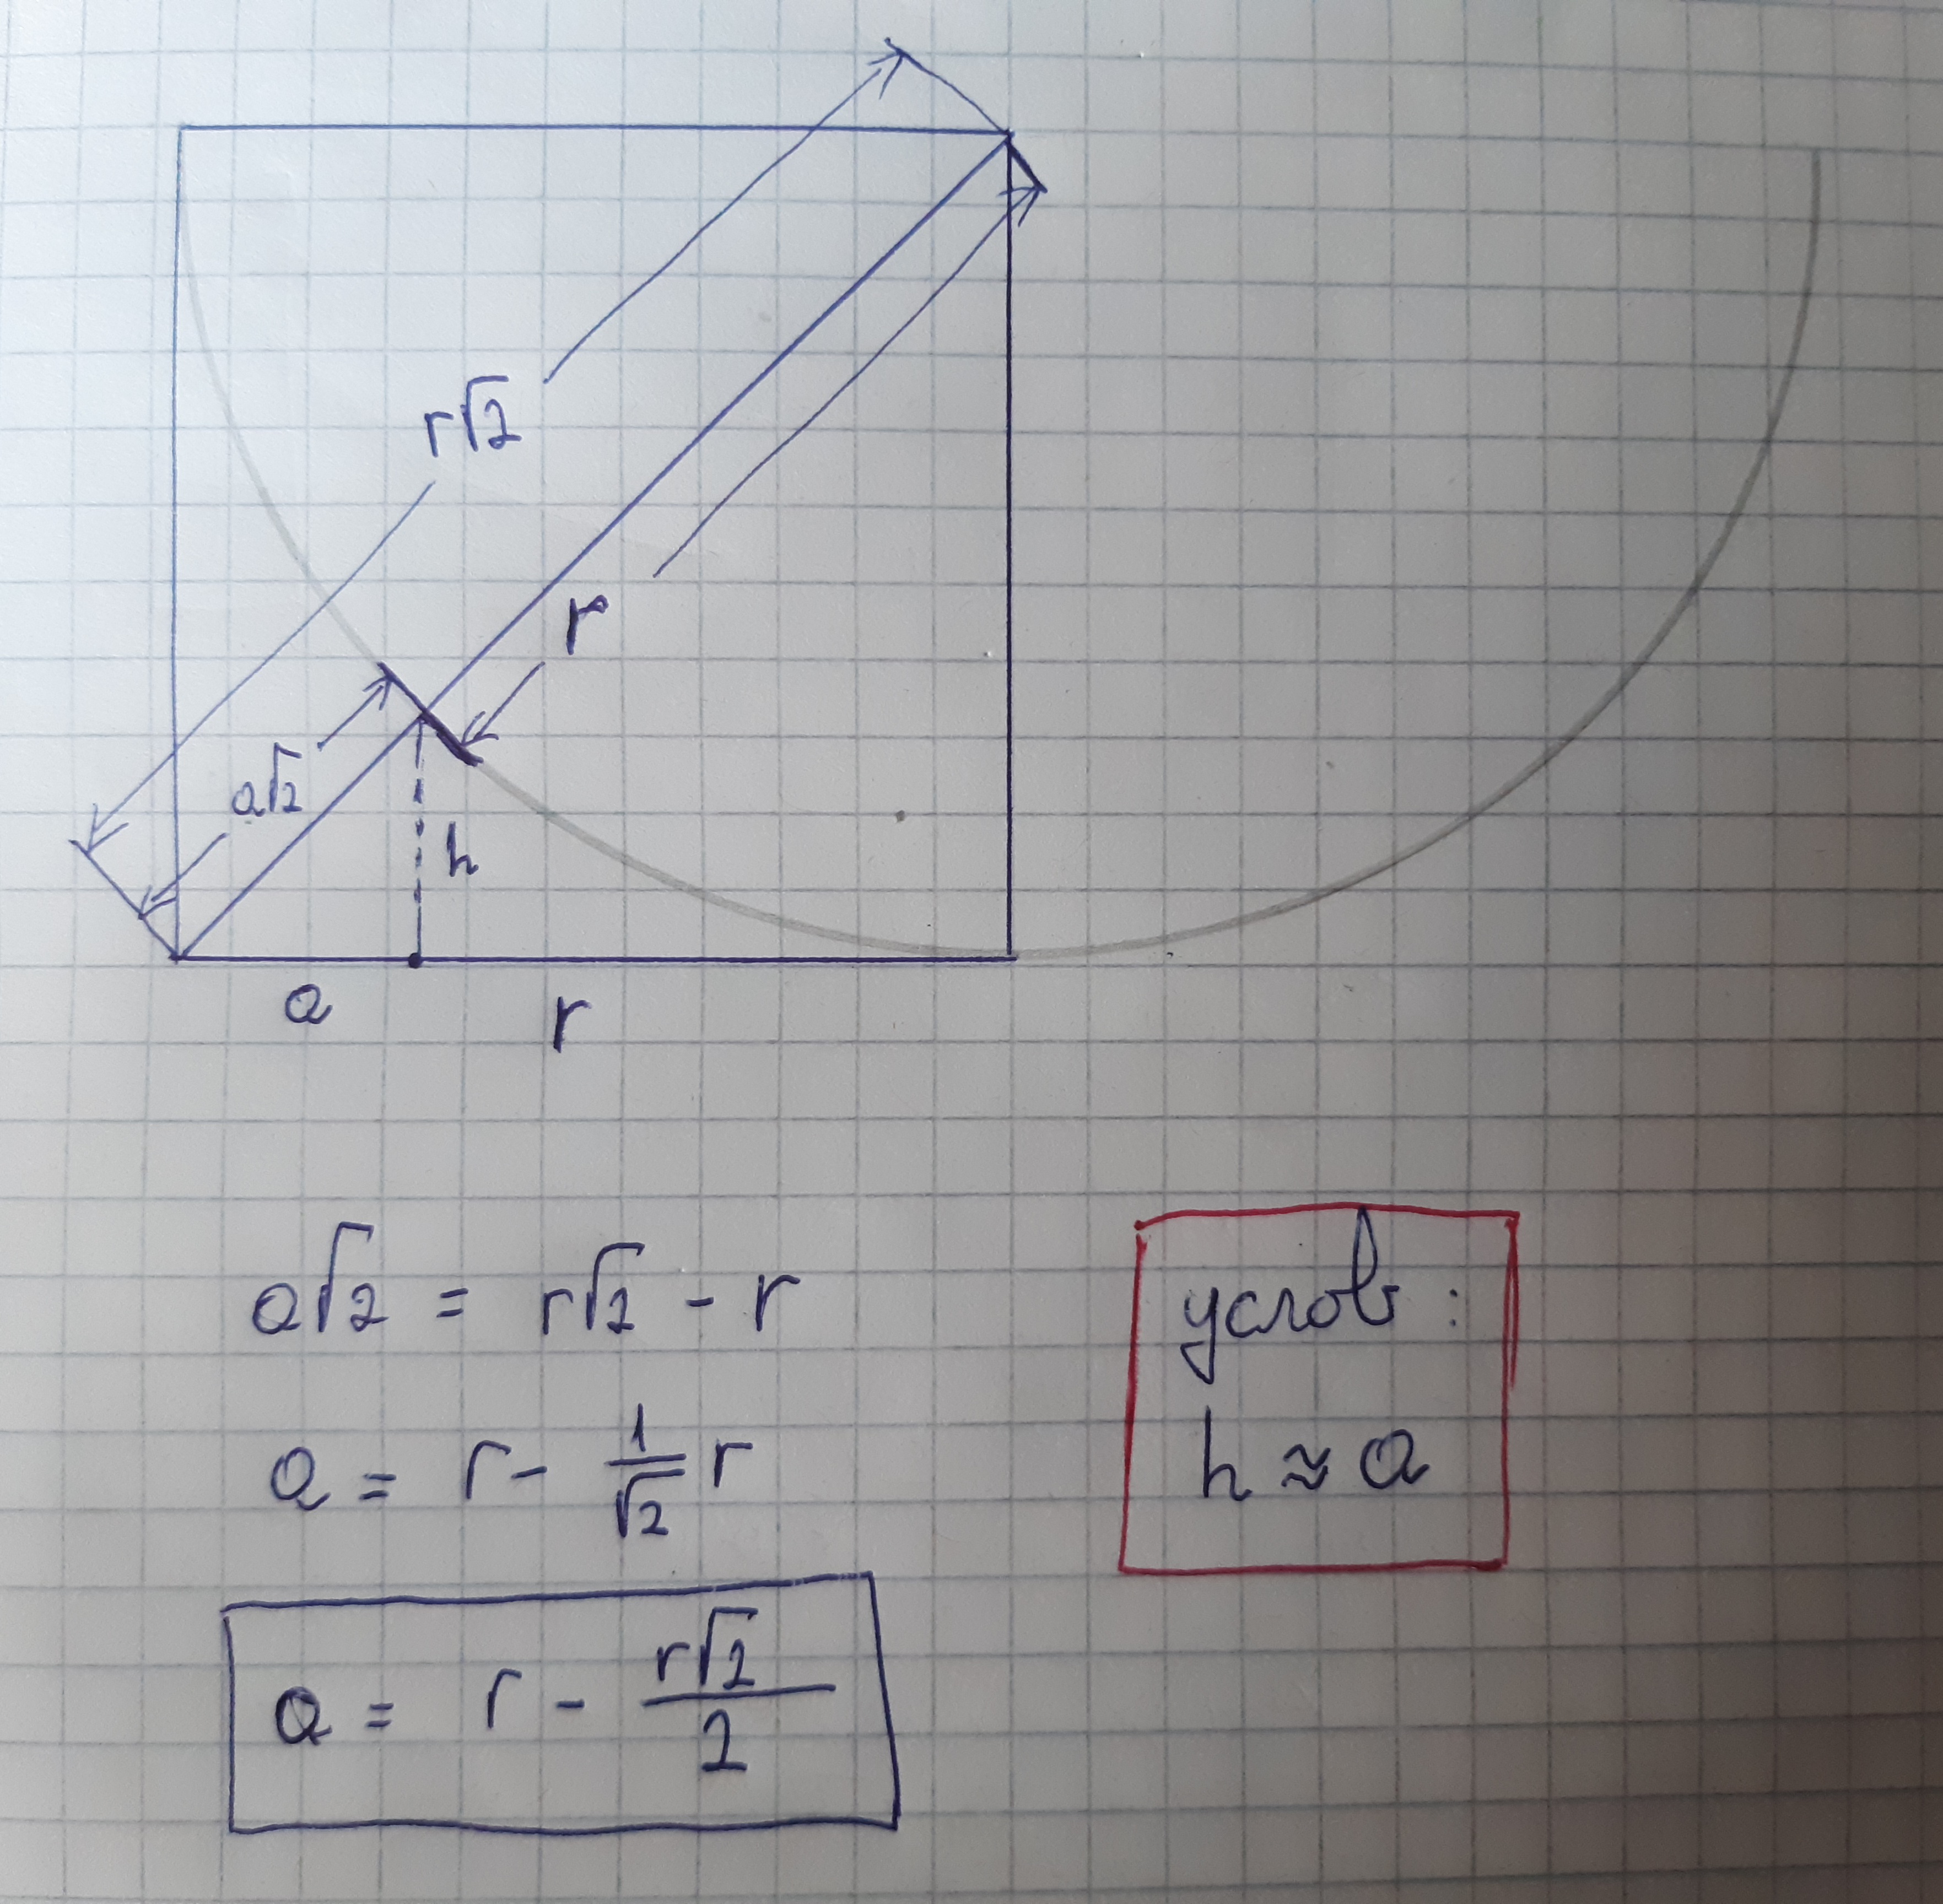 r√2
r
a√2
h
a
r
a√2 = r√2 - r
a = r - 1/√2 r
a = r - r√2/2
услов :
h ≈ a